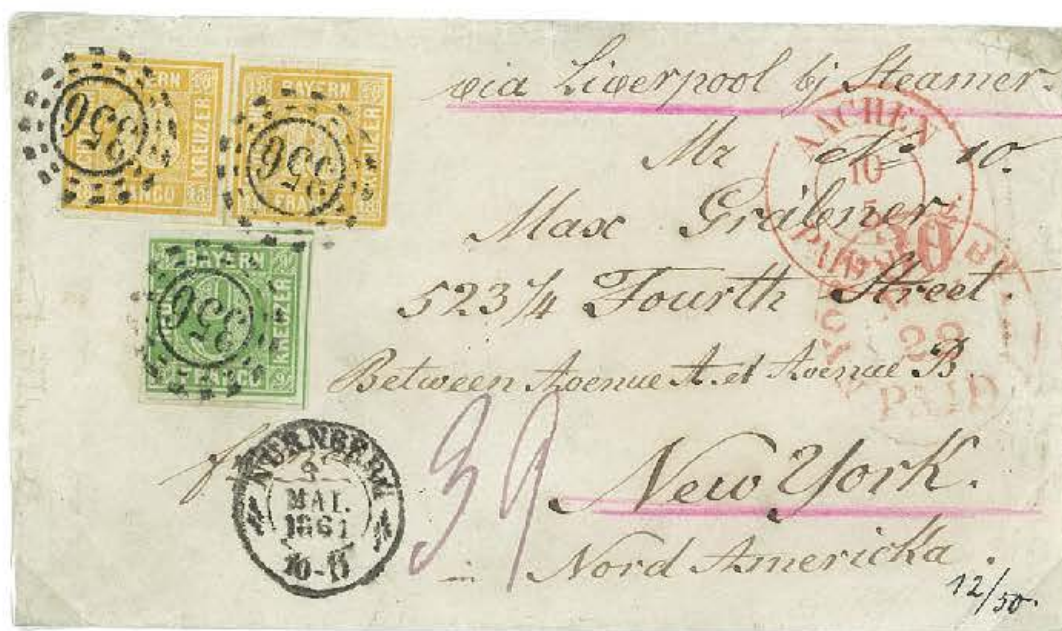 BAYERN
18 KREUZER 18
FRANCO
356
BAYERN
18 KREUZER 18
FRANCO
356
BAYERN
9 KREUZER 9
FRANCO
356
via Liverpool by Steamer.
AACHEN
10
5
PAID
30
Mr No 10.
Max Gräbner
523/4 Fourth Street.
22
Between Avenue A. et Avenue B.
PAID
NÜRNBERG
MAI.
1861
10-11
39
New York.
in Nord Americka.
12/50